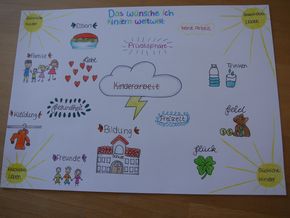 Das wünsche ich
Kindern weltweit
Essen
Privatsphäre
keine Arbeit
Familie
Liebe
Trinken
Kinderarbeit
Gesundheit
Freizeit
Geld
Kleidung
Bildung
Freunde
Glück